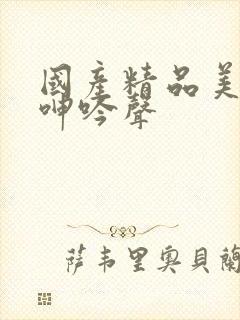 國産精品美
呻吟聲
萨韦里奥貝蘭